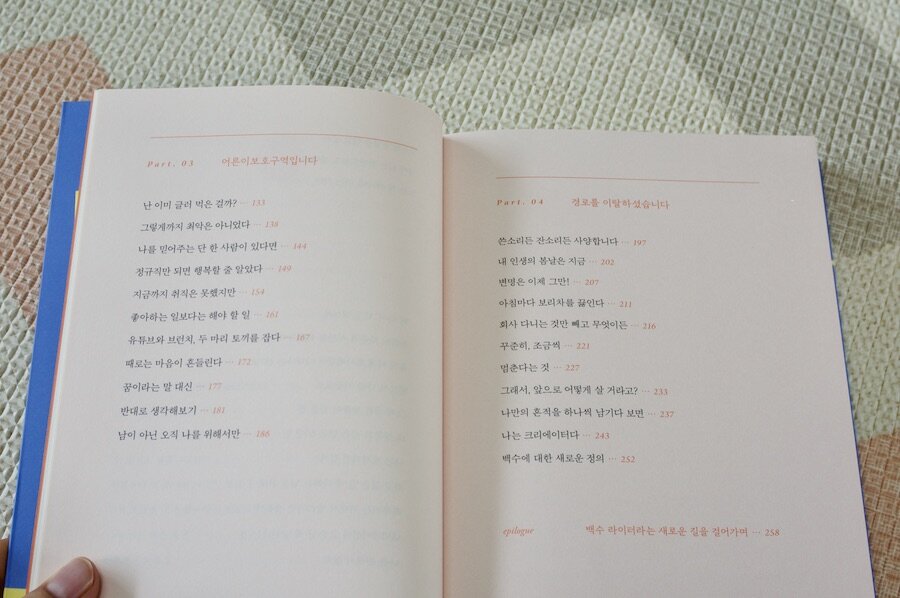 Part. 03 어른이보호구역입니다
난 이미 글러 먹은 걸까? … 133
그렇게까지 최악은 아니었다 … 138
나를 믿어주는 단 한 사람이 있다면 … 144
정규직만 되면 행복할 줄 알았다 … 149
지금까지 취직은 못했지만 … 154
좋아하는 일보다는 해야 할 일 … 161
유튜브와 브런치, 두 마리 토끼를 잡다 … 167
때로는 마음이 흔들린다 … 172
꿈이라는 말 대신 … 177
반대로 생각해보기 … 181
남이 아닌 오직 나를 위해서만 … 186
Part. 04 경로를 이탈하셨습니다
쓴소리든 잔소리든 사양합니다 … 197
내 인생의 봄날은 지금 … 202
변명은 이제 그만! … 207
아침마다 보리차를 끓인다 … 211
회사 다니는 것만 빼고 무엇이든 … 216
꾸준히, 조금씩 … 221
멈춘다는 것 … 227
그래서, 앞으로 어떻게 살 거라고? … 233
나만의 흔적을 하나씩 남기다 보면 … 237
나는 크리에이터다 … 243
백수에 대한 새로운 정의 … 252
epilogue 백수 라이터라는 새로운 길을 걸어가며 … 258